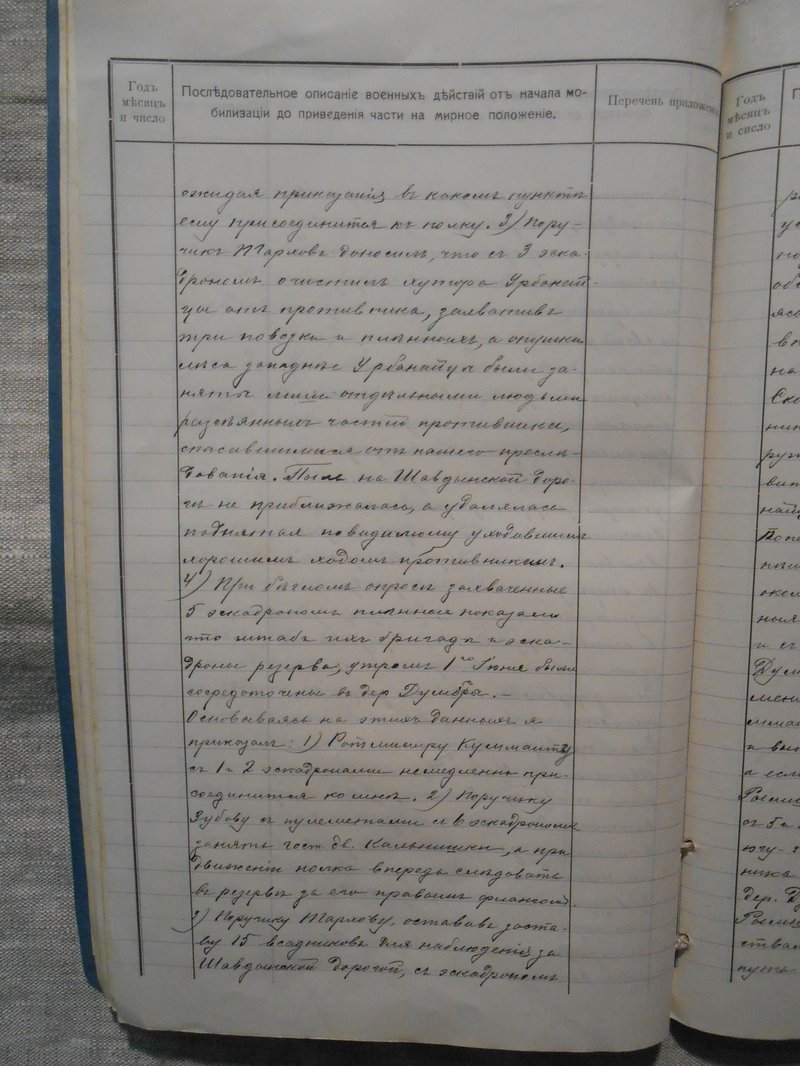 Годъ
мѣсяцъ
и число
Послѣдовательное описаніе военныхъ дѣйствій отъ начала мо-
билизаціи до приведенія части на мирное положеніе.
Перечень приложені
ожидая приказанія въ какомъ пунктѣ
ему присоединится къ полку. 3) Пору-
чикъ Тарховъ доноситъ, что съ 3 эска-
дрономъ очистилъ хутора Урбанай-
цы отъ противника, захвативъ
три повозки и плѣнныхъ, а опушки
лѣса западнѣе Урбанайцы были за-
няты лишь отдѣльными людьми
разсѣянныхъ частей противника,
спасавшимися отъ нашего преслѣ-
дованія. Пыль на Шавдынской доро-
гѣ не приближалась, а удалялась
поднятая повидимому уходившимъ
хорошимъ ходомъ противникомъ.
4) При бѣгломъ опросѣ захваченные
5 эскадрономъ плѣнные показали
что штабъ ихъ бригады и эска-
дроны резерва, утромъ 1го Іюня были
сосредоточены въ дер Думбры. –
Основываясь на этихъ данныхъ я
приказалъ: 1) Ротмистру
съ 1 и 2 эскадронами немедленно при-
соединится ко мнѣ. 2) Поручику
Зубову съ пулеметами съ 6 эскадрономъ
занять гост. дв. Кальнишки, а при
движеніи полка впередъ слѣдовать
въ резервѣ за его правымъ флангомъ.
3) Поручику Тархову, оставивъ заста-
ву 15 всадниковъ для наблюденія за
Шавдынской дорогой, съ эскадрономъ
Годъ
мѣсяцъ
и число